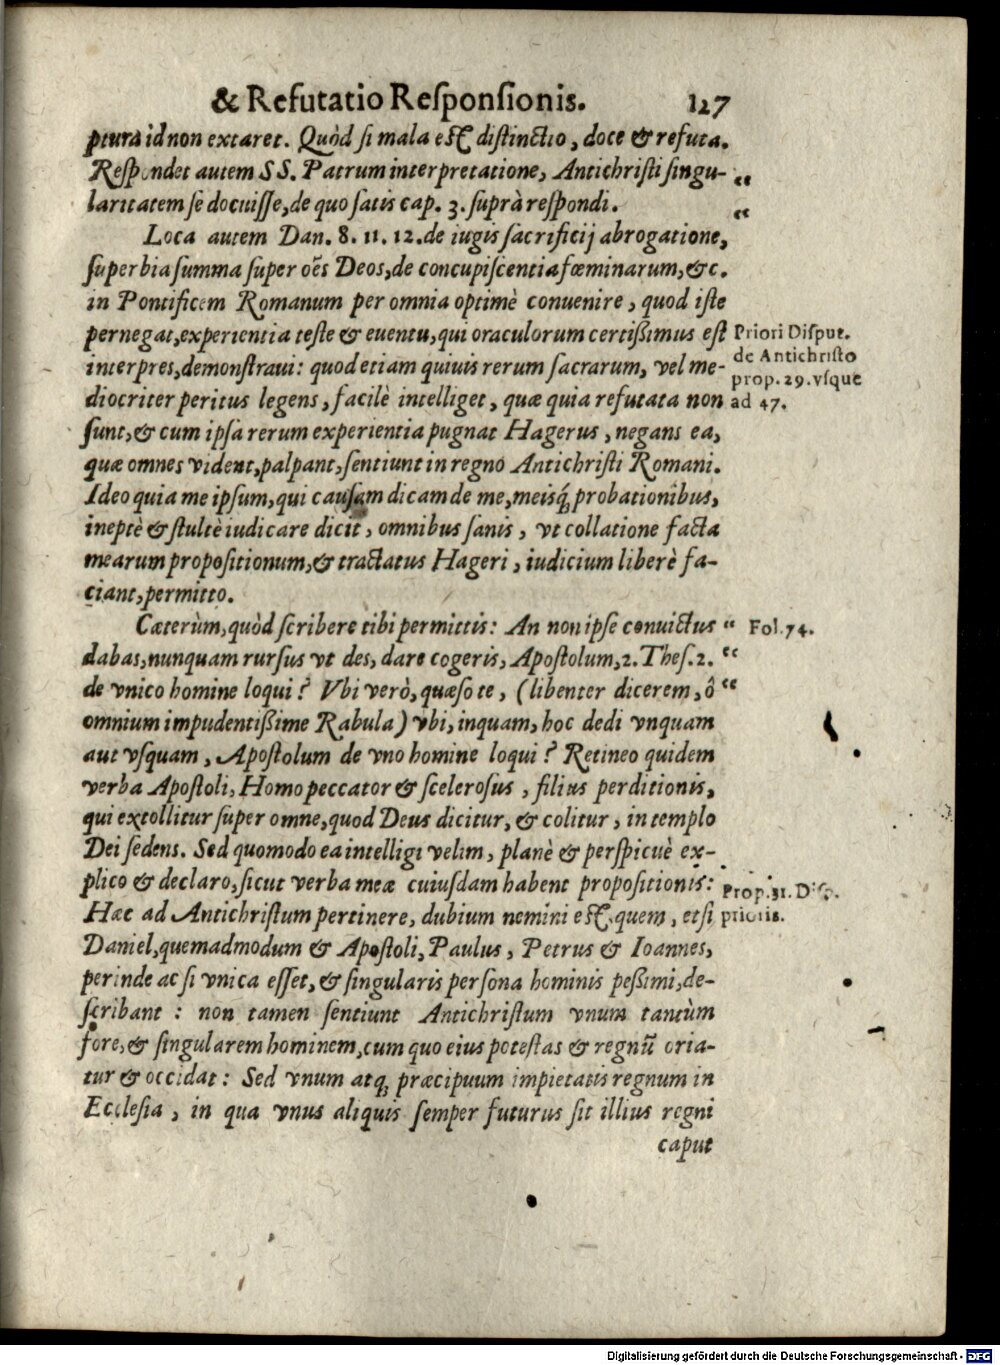 & Refutatio Responsionis. 127
ptura id non extaret. Quòd si mala est distinctio, doce & refuta.
Respondet autem SS. Patrum interpretatione, Antichristi singu- “
laritatem se docuisse, de quo satis cap. 3. suprà respondi. “
Loca autem Dan. 8. 11. 12. de iugis sacrificij abrogatione,
superbia summa super oēs Deos, de concupiscentia fœminarum, &c.
in Pontificem Romanum per omnia optimè conuenire, quod iste
pernegat, experientia teste & euentu, qui oraculorum certißimus est
interpres, demonstraui: quod etiam quiuis rerum sacrarum, vel me-
diocriter peritus legens, facilè intelliget, quæ quia refutata non
sunt, & cum ipsa rerum experientia pugnat Hagerus, negans ea,
quæ omnes vident, palpant, sentiunt in regno Antichristi Romani.
Ideo quia me ipsum, qui causam dicam de me, meisq́; probationibus,
ineptè & stultè iudicare dicit, omnibus sanis, vt collatione facta
mearum propositionum, & tractatus Hageri, iudicium liberè fa-
ciant, permitto.
Priori Disput.
de Antichristo
prop. 29. vsque
ad 47.
Cæterùm, quòd scribere tibi permittis: An non ipse conuictus “
dabas, nunquam rursus vt des, dare cogeris, Apostolum, 2. Thes. 2. “
de vnico homine loqui? Vbi verò, quæso te, (libenter dicerem, ô “
omnium impudentißime Rabula) vbi, inquam, hoc dedi vnquam
aut vsquam, Apostolum de vno homine loqui? Retineo quidem
verba Apostoli, Homo peccator & scelerosus, filius perditionis,
qui extollitur super omne, quod Deus dicitur, & colitur, in templo
Dei sedens. Sed quomodo ea intelligi velim, planè & perspicuè ex-
plico & declaro, sicut verba meæ cuiusdam habent propositionis:
Hæc ad Antichristum pertinere, dubium nemini est, quem, etsi
Daniel, quemadmodum & Apostoli, Paulus, Petrus & Ioannes,
perinde ac si vnica esset, & singularis persona hominis peßimi, de-
scribant: non tamen sentiunt Antichristum vnum tantùm
fore, & singularem hominem, cum quo eius potestas & regnũ oria-
tur & occidat: Sed vnum atq; præcipuum impietatis regnum in
Ecclesia, in qua vnus aliquis semper futurus sit illius regni
caput
Fol. 74.
Prop. 31. Disp.
prioris.
Digitalisierung gefördert durch die Deutsche Forschungsgemeinschaft - DFG